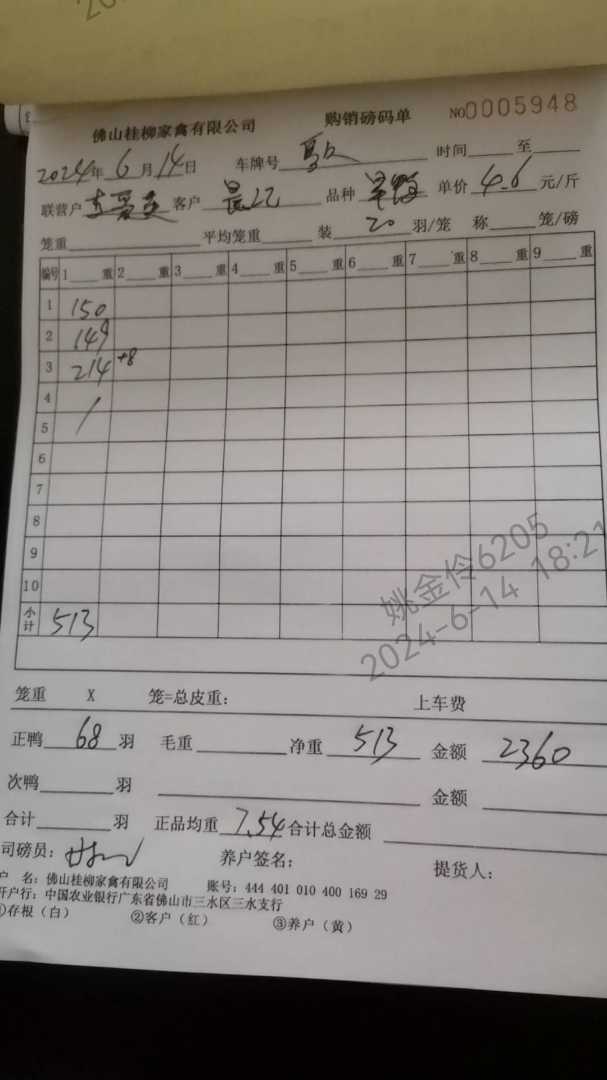 佛山桂柳家禽有限公司 购销磅码单 NO0005948
2024年6月14日 车牌号 时间 至
联营户 客户 品种 单价 4.6 元/斤
笼重 平均笼重 装 20 羽/笼 称 笼/磅
编号 1 重 2 重 3 重 4 重 5 重 6 重 7 重 8 重 9 重
1 150
2 149
3 214 +8
4 /
5
6
7
8
9
10
小计 513
姚金伶6205
2024-6-14 18:21
笼重 X 笼=总皮重: 上车费
正鸭 68 羽 毛重 净重 513 金额 2360
次鸭 羽 金额
合计 羽 正品均重 7.54 合计总金额
司磅员: 养户签名: 提货人:
户 名: 佛山桂柳家禽有限公司 账号: 444 401 010 400 169 29
开户行: 中国农业银行广东省佛山市三水区三水支行
①存根（白） ②客户（红） ③养户（黄）